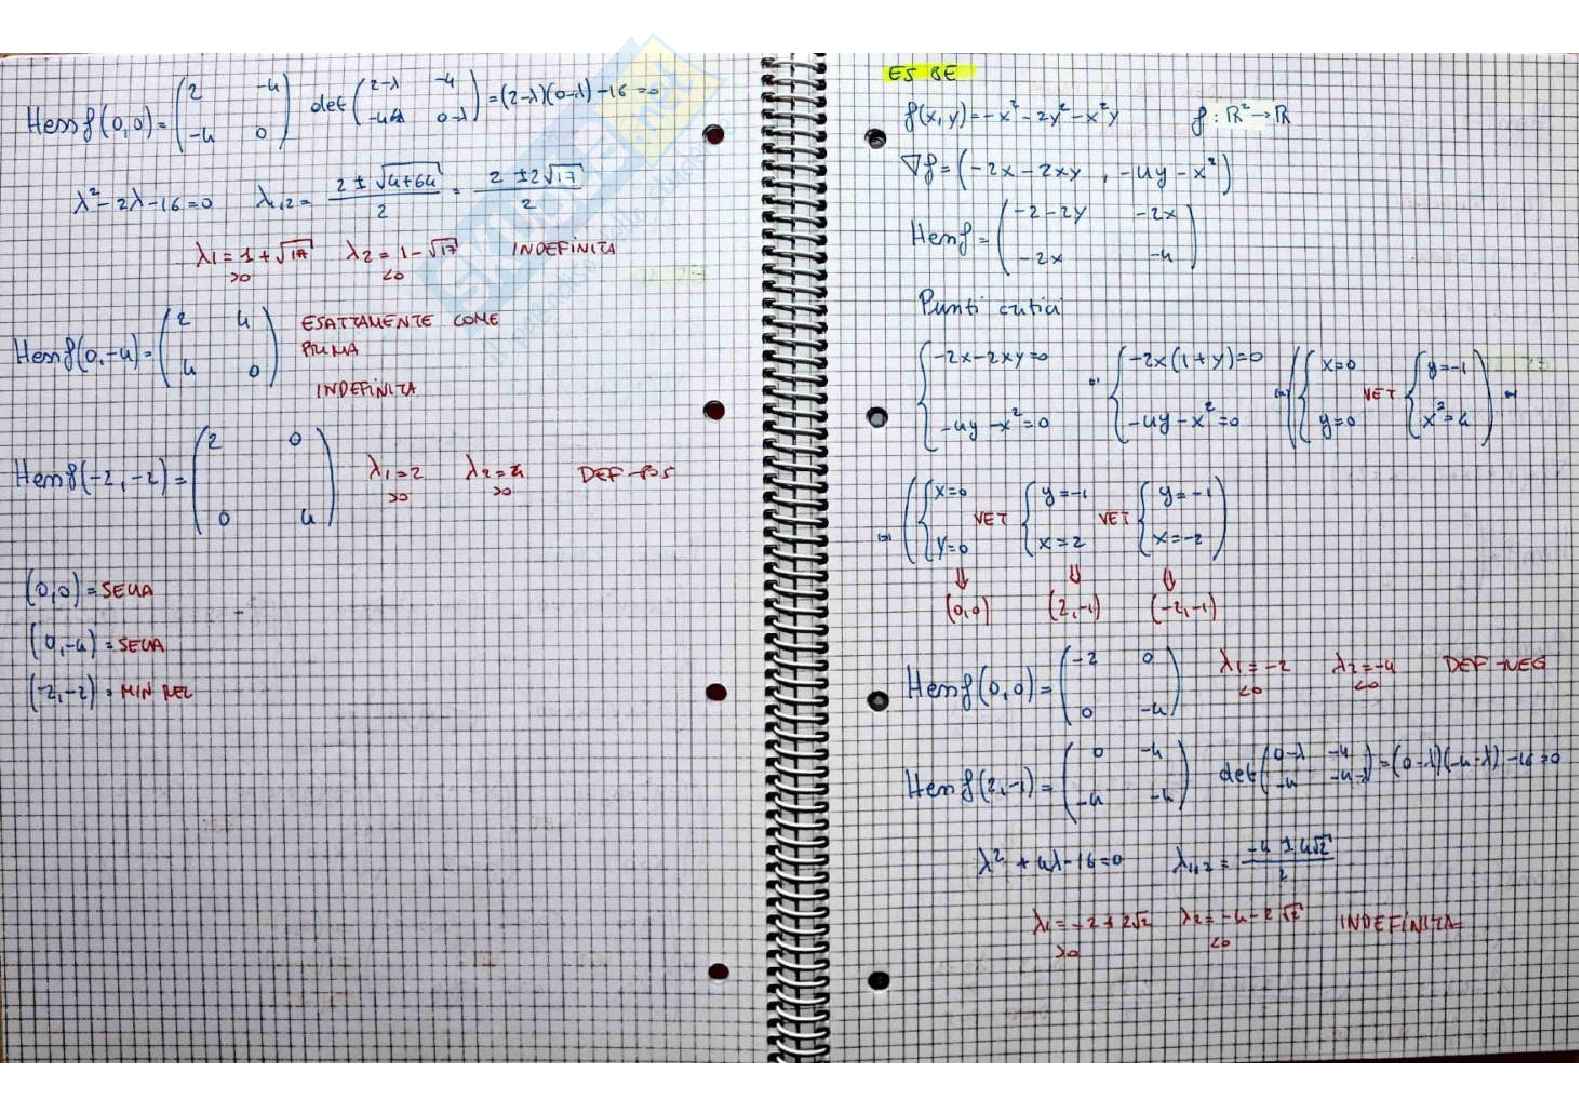 Hess f(0,0) = (2 -4 / -4 0) det (2-λ -4 / -4 0-λ) = (2-λ)(0-λ) - 16 = 0
λ² - 2λ - 16 = 0 λ1,2 = (2 ± √4+64)/2 = (2 ± 2√17)/2
λ1 = 1 + √17 >0 λ2 = 1 - √17 <0 INDEFINITA
Hess f(0,-4) = (2 4 / 4 0) ESATTAMENTE COME
PRIMA
INDEFINITA
Hess f(-2,-2) = (2 0 / 0 4) λ1 = 2 >0 λ2 = 4 >0 DEF POS
(0,0) = SELLA
(0,-4) = SELLA
(-2,-2) = MIN REL
ES 8E
f(x,y) = -x² - 2y² - x²y f: ℝ² → ℝ
∇f = (-2x - 2xy, -4y - x²)
Hess f = (-2-2y -2x / -2x -4)
Punti critici
{-2x-2xy=0 / -4y-x²=0 ⇔ {-2x(1+y)=0 / -4y-x²=0 ⇔ ({x=0 / y=0 VET {y=-1 / x²=4) ⇔
⇔ ({x=0 / y=0 VET {y=-1 / x=2 VET {y=-1 / x=-2)
⇓ ⇓ ⇓
(0,0) (2,-1) (-2,-1)
Hess f(0,0) = (-2 0 / 0 -4) λ1 = -2 <0 λ2 = -4 <0 DEF NEG
Hess f(2,-1) = (0 -4 / -4 -4) det (0-λ -4 / -4 -4-λ) = (0-λ)(-4-λ) - 16 = 0
λ² + 4λ - 16 = 0 λ1,2 = (-4 ± 4√2)/2
λ1 = -2 + 2√2 >0 λ2 = -4 - 2√2 <0 INDEFINITA